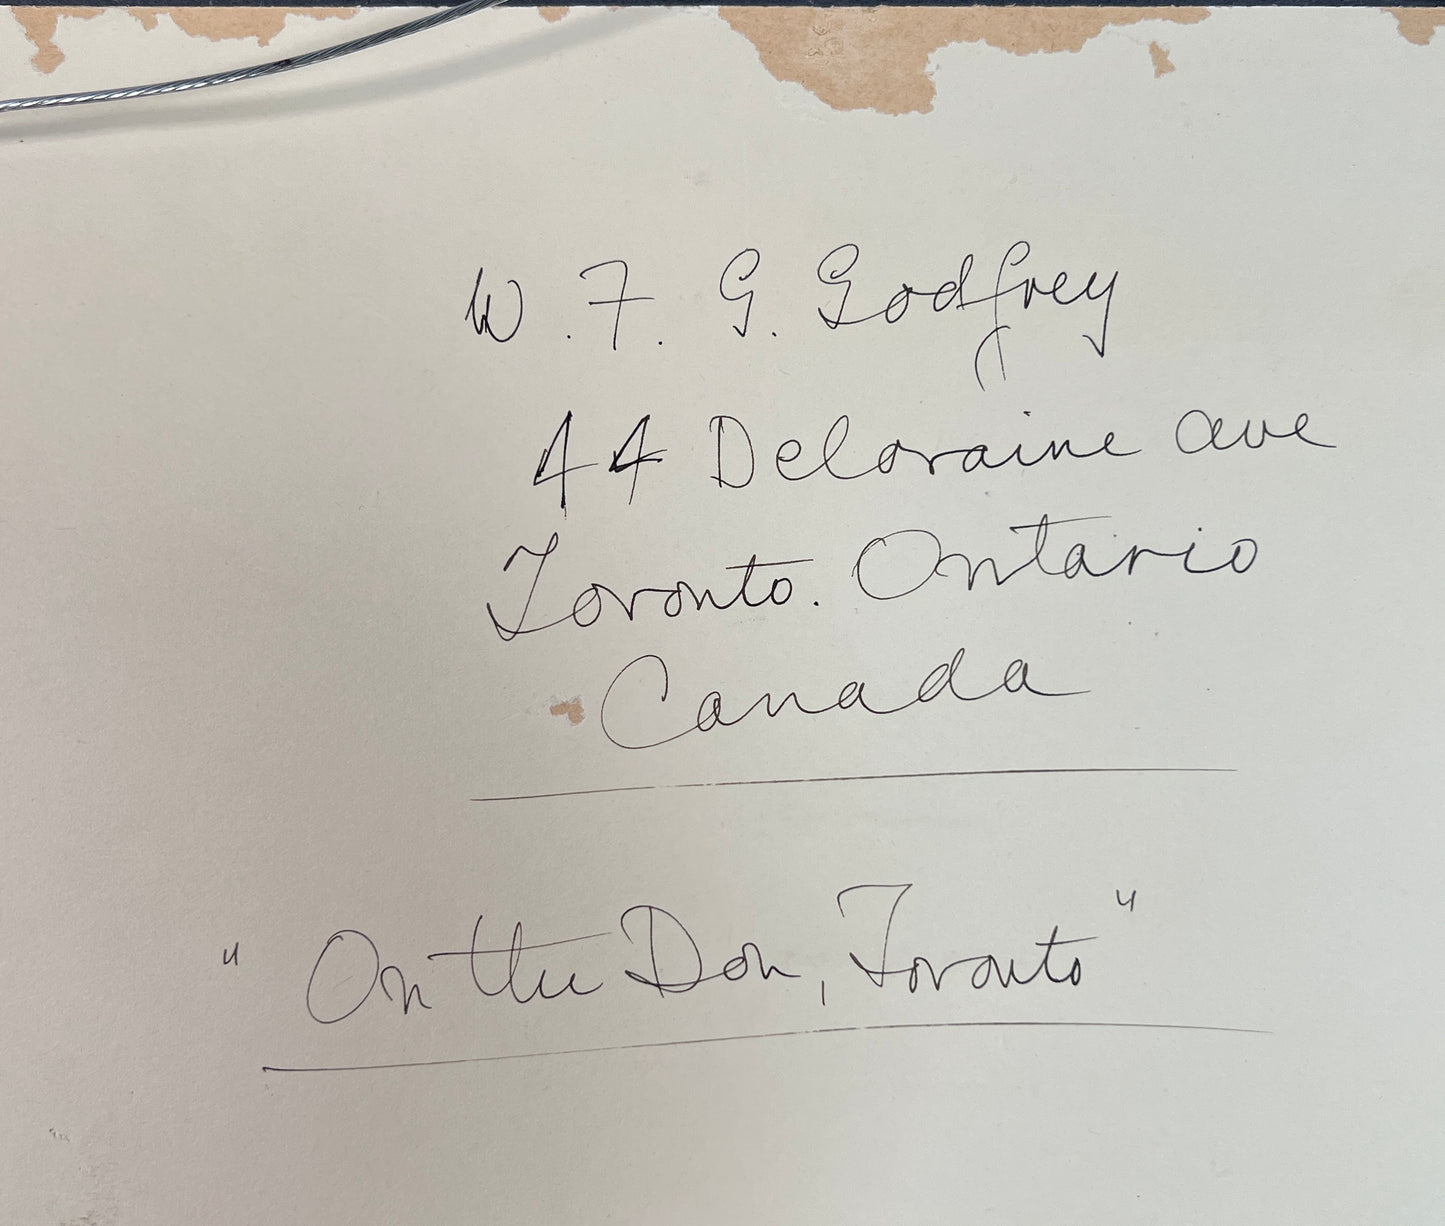 W. F. G. Godfrey
44 Deloraine Ave
Toronto. Ontario
Canada
"On the Don, Toronto"